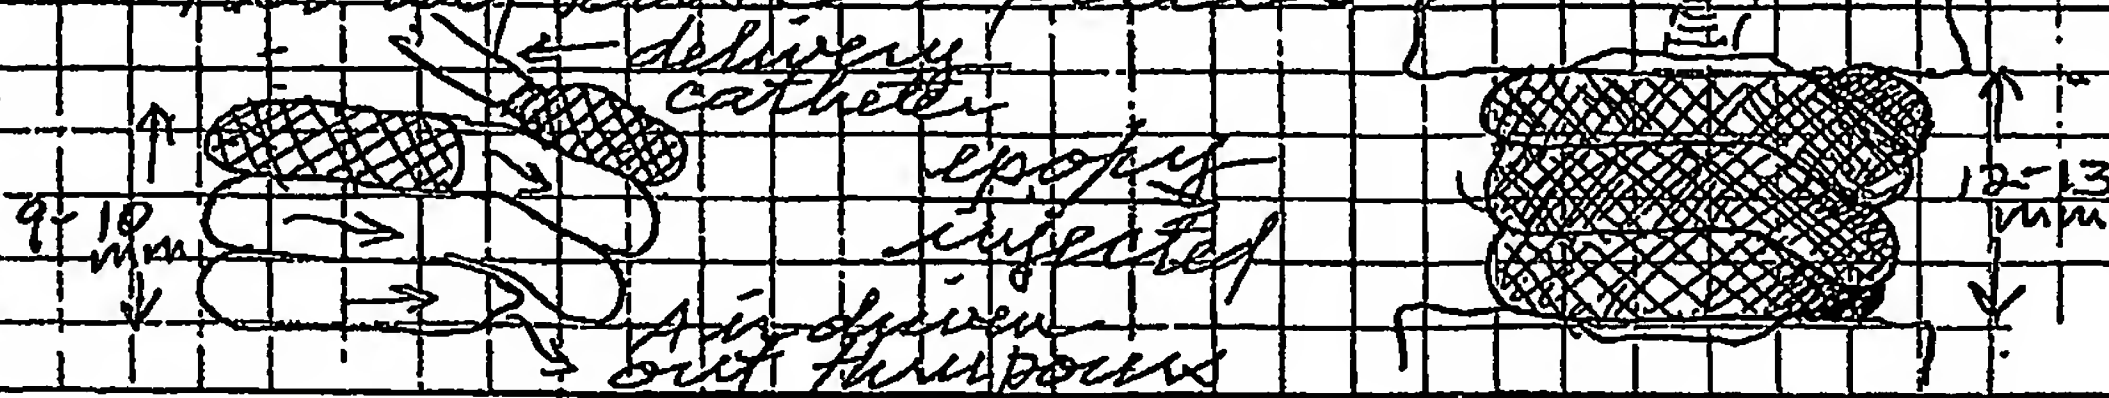 delivery
catheter
9-10
mm
epoxy
injected
Air driven
out thru pours
12-13
mm